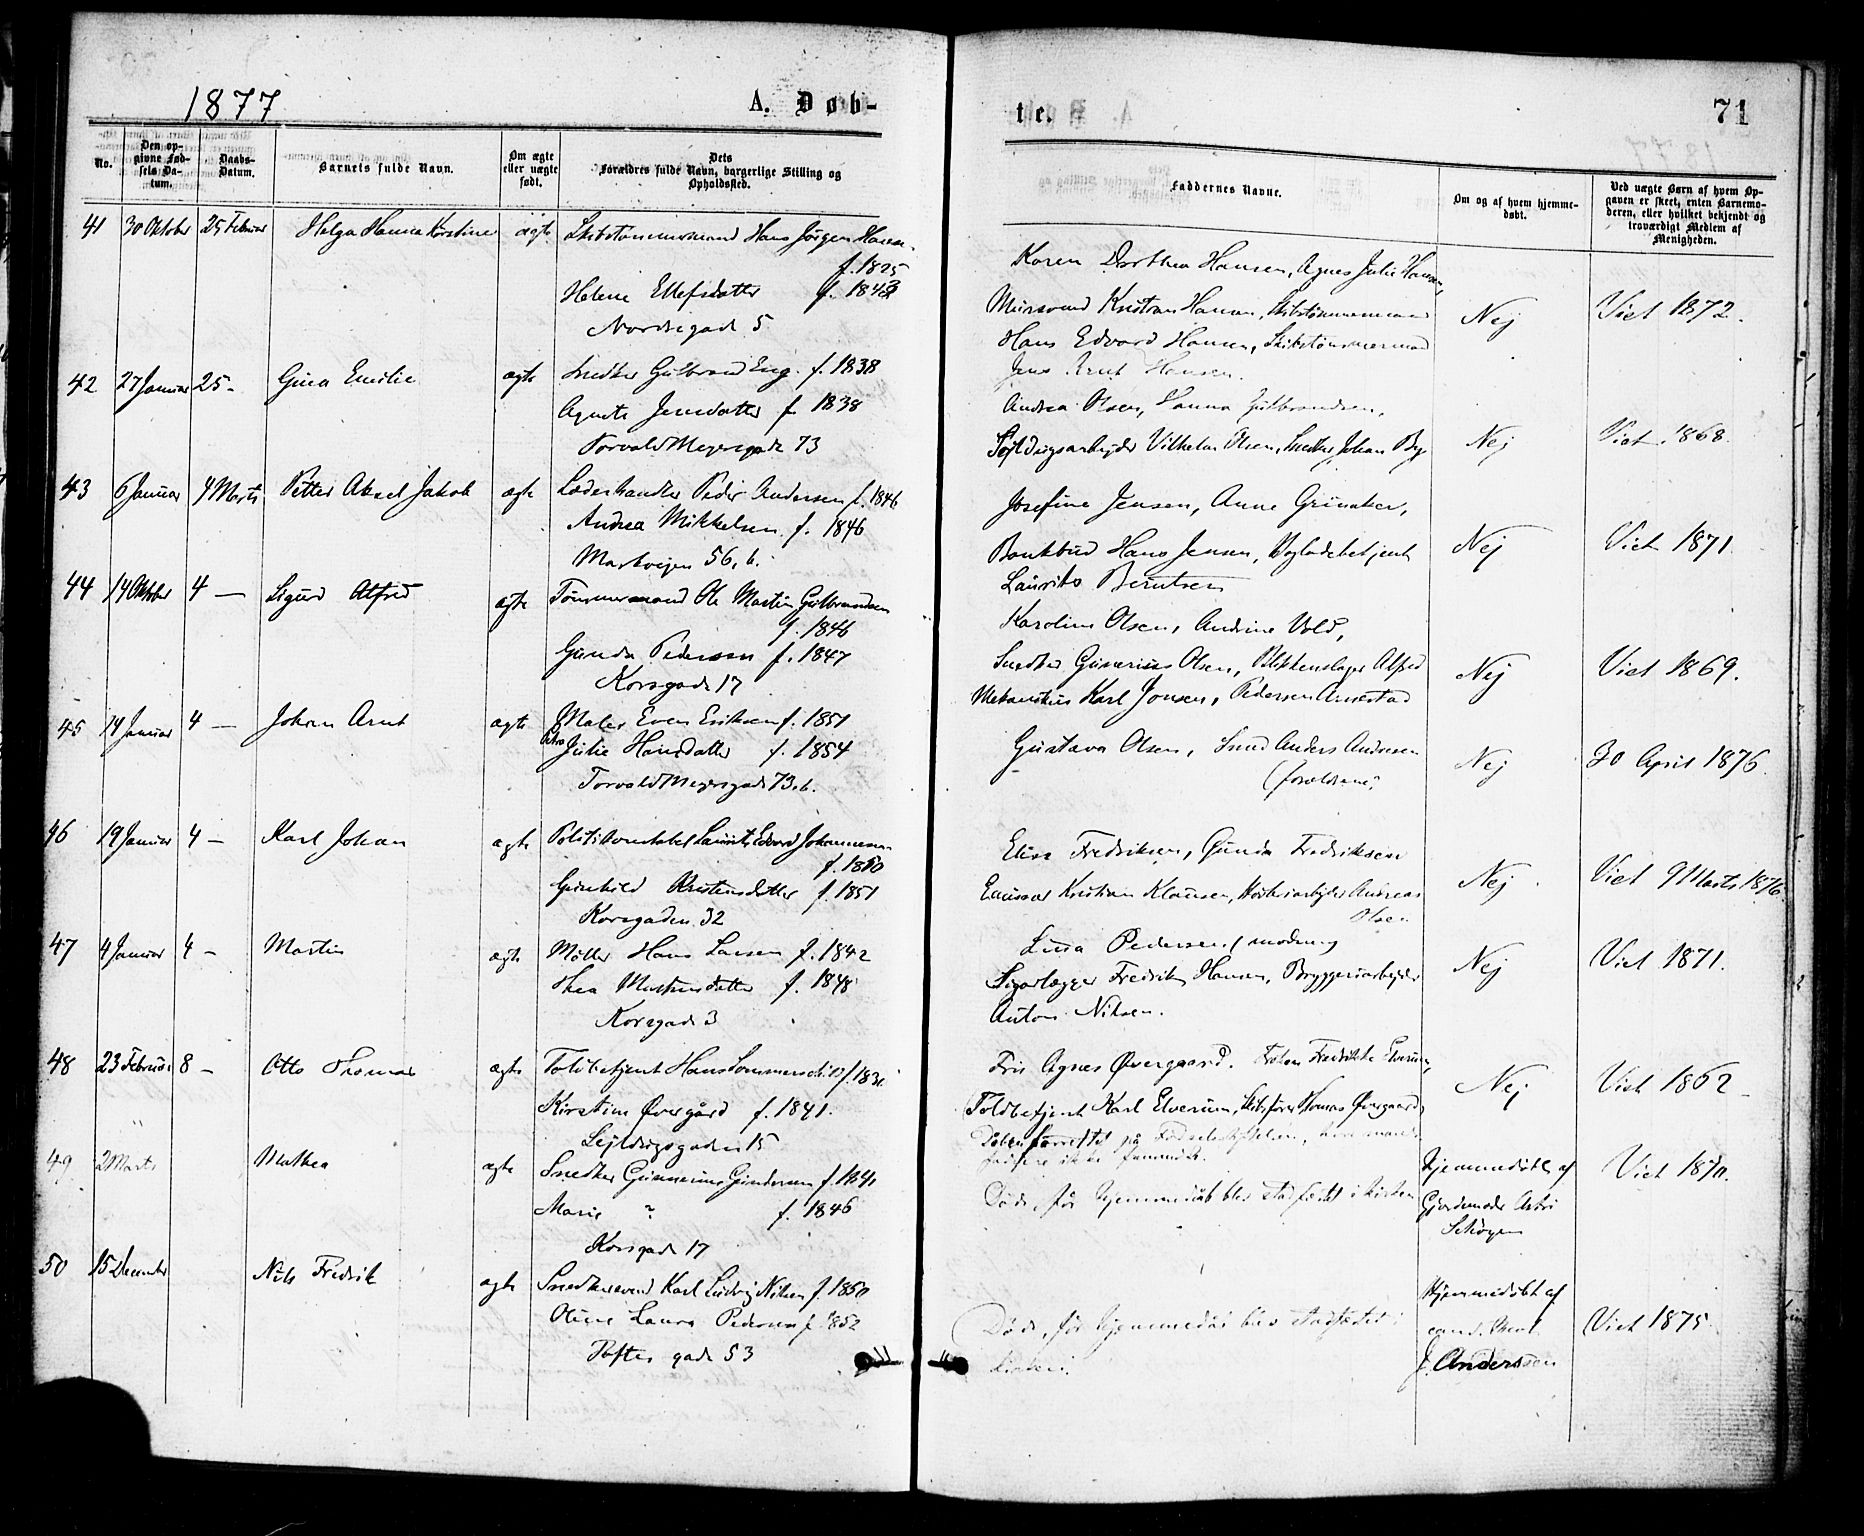 1877
A. Døb-
te.
71
No.
Den op-
givne Fød-
sels Da-
tum.
Daabs-
Datum.
Barnets fulde Navn.
Om ægte
eller uægte
født.
Dets
Forældres fulde Navn, borgerlige Stilling og
Opholdssted.
Faddernes Navne.
Om og af hvem hjemme-
døbt.
Ved uægte Børn af hvem Op-
gaven er skeet, enten Barnemo-
deren, eller hvilket bekjendt og
troværdigt Medlem af
Menigheden.
41 30 Oktober 25 Februar Helga Hanna Kirstine ægte Skibstømmermand Hans Jørgen Hansen
f. 1825
Helene Ellefsdatter f. 1843
Nordregade 5
Karen Dorthea Hansen, Agnes Julie Hansen,
Mursvend Kristian Hansen, Skibstømmermand
Hans Edvard Hansen, Skibstømmermand
Jens Arnt Hansen.
Nej
Viet 1872.
42 27 Januar 25 - Gina Emilie ægte Snedker Gulbrand Eng. f. 1838
Agnete Jensdatter f. 1838
Torvald Meyersgade 73
Andrea Olsen, Hanna Gulbrandsen,
Sejldugsarbejder Vilhelm Olsen, Snedker Johan
Nej
Viet 1868.
43 6 Januar 4 Marts Petter Aksel Jakob ægte Læderhandler Peder Andersen f. 1846
Andrea Mikkelsen f. 1846
Markvejen 56, b.
Josefine Jensen, Anne Grinaker,
Bankbud Hans Jensen,
Laurits Berntsen
Nej
Viet 1871
44 14 Oktober 4 - Sigurd Alfred ægte Tømmermand Ole Martin Gulbrandsen
f. 1846
Gunda Pedersen f. 1847
Korsgade 17
Karoline Olsen, Andrine Vold,
Snedker Gunerius Olsen, Blikkenslager Alfred
Mekanikus Karl Jonsen, Pedersen Arnestad
Nej
Viet 1869.
45 14 Januar 4 - Johan Arnt ægte Maler Even Eriksen f. 1851
Julie Hansdatter f. 1854
Torvald Meyersgade 73, b.
Gustava Olsen, Smed Anders Andresen
(forældrene)
Nej
30 April 1876.
46 19 Januar 4 - Karl Johan ægte Politikonstabel Laurits Edvard Johannesen
f. 1850
Gunhild Kristensdatter f. 1851
Korsgaden 32
Elise Fredriksen, Gunda Fredriksen
Kristian Klausen, Andreas
Olsen
Nej
Viet 9 Marts 1876.
47 4 Januar 4 - Martin ægte Møller Hans Larsen f. 1842
Thea Martinsdatter f. 1848
Korsgade 3
Lina Pedersen, moderen
Fredrik Hansen, Bryggeriarbejder
Anton Nilsen.
Nej
Viet 1871.
48 23 Februar 8 - Otto Thomas ægte Toldbetjent Hans f. 183
Kirstine Øvergård f. 1841.
Sejldugsgaden 15
Fru Agnes Øvergaard. Frøken Fredrikke Elverum,
Toldbetjent Karl Elverum, Skibsfører Thomas Øvergaard
Nej
Viet 1862
49 2 Marts Mathea ægte Snedker Gunnerius Gundersen f. 1841
Marie ? f. 1846
Korsgade 17
Daaben forrettet på Fødselsstiftelsen, hvor
faddere ikke
Døde, før Hjemmedåb blev stadfæstet i kirken
Hjemmedøbt af
Gjordemoder
Viet 1870.
50 15 December Nils Fredrik ægte Snedkersvend Karl Ludvig Nilsen f. 1850
Oline Laura Pedersen f. 1852
Toftes gade 53
Døde, før hjemmedåb blev stadfæstet i
kirken.
Hjemmedøbt af
cand. theol.
J. Anderssen
Viet 1875.